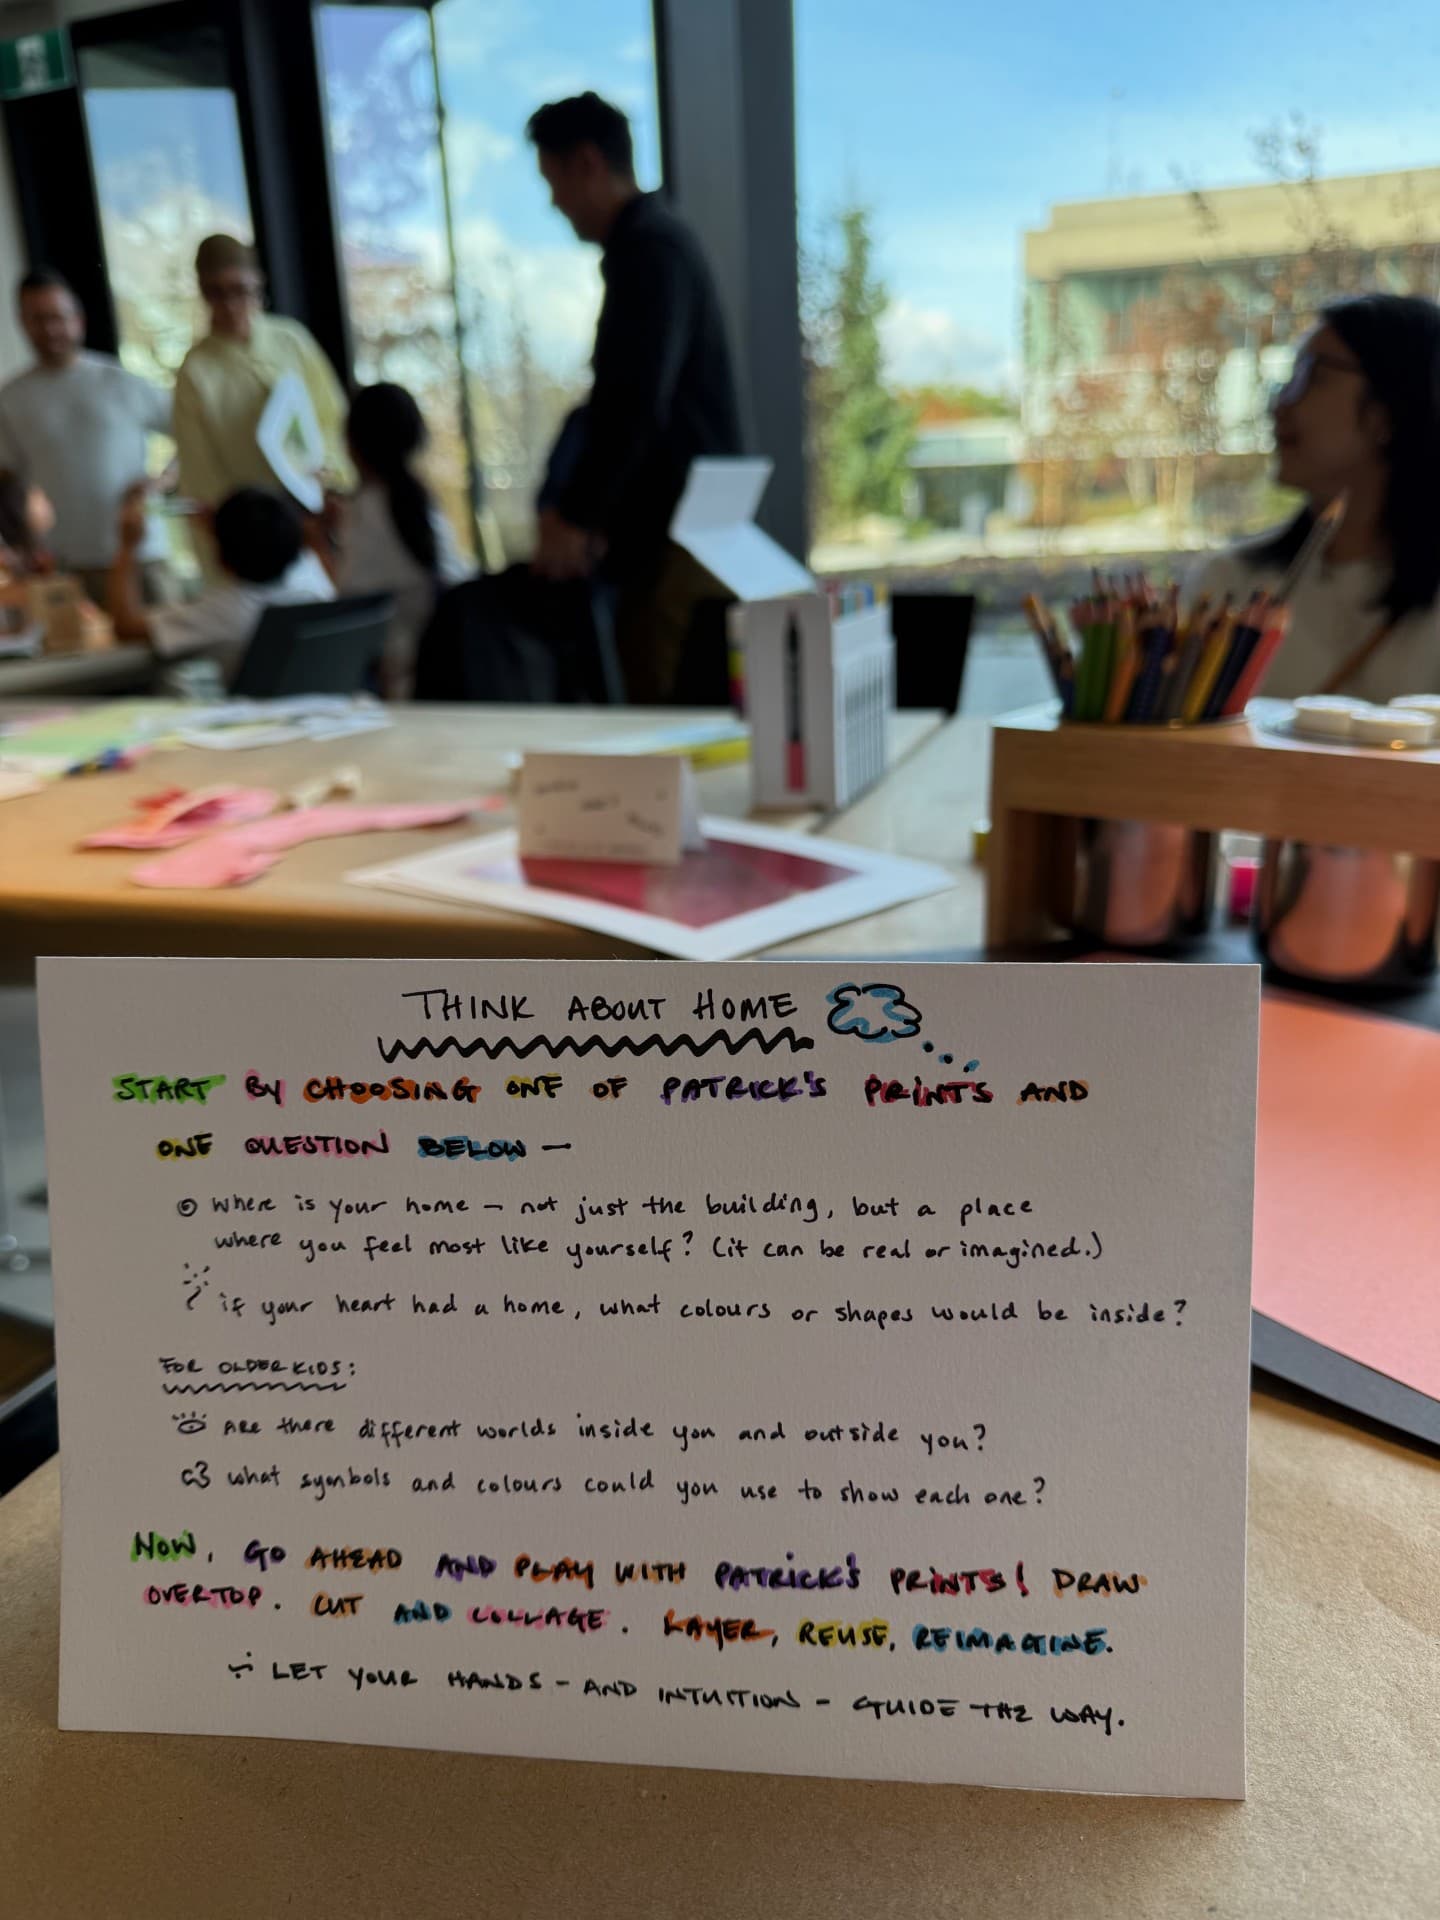 THINK ABOUT HOME
START BY CHOOSING ONE OF PATRICK'S PRINTS AND
ONE QUESTION BELOW —
where is your home — not just the building, but a place
where you feel most like yourself? (it can be real or imagined.)
if your heart had a home, what colours or shapes would be inside?
FOR OLDER KIDS:
Are there different worlds inside you and outside you?
what symbols and colours could you use to show each one?
NOW, GO AHEAD AND PLAY WITH PATRICK'S PRINTS! DRAW
OVERTOP. CUT AND COLLAGE. LAYER, REUSE, REIMAGINE.
LET YOUR HANDS - AND INTUITION - GUIDE THE WAY.